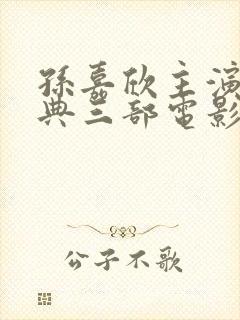 孫嘉欣主演
典三部電影
公子不歌